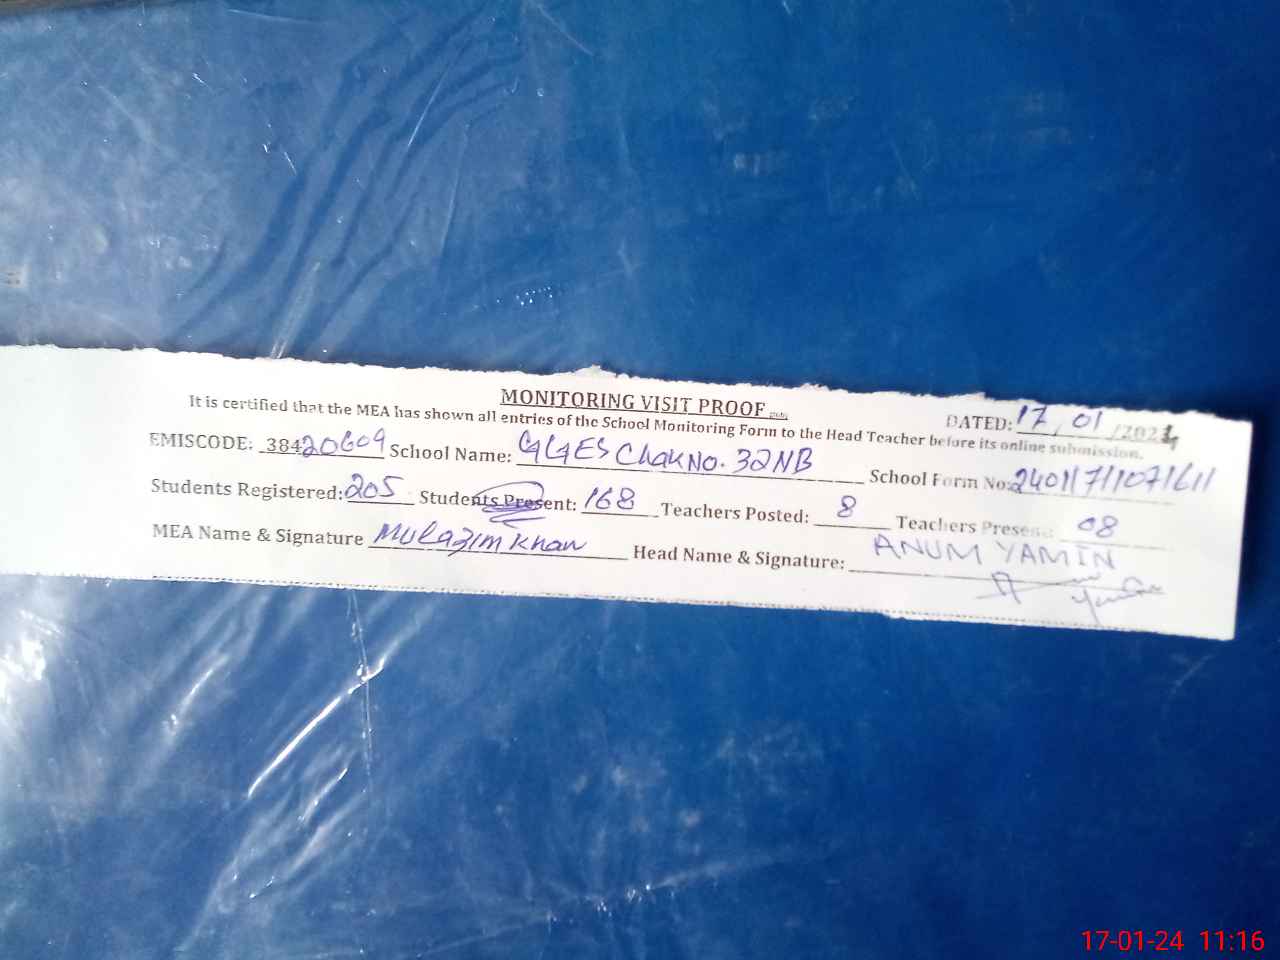 MONITORING VISIT PROOF
DATED: 17, 01 /2024
It is certified that the MEA has shown all entries of the School Monitoring Form to the Head Teacher before its online submission.
EMISCODE: 38420609 School Name: GGES Chak No. 32NB School Form No: 24011711071611
Students Registered: 205 Students Present: 168 Teachers Posted: 8 Teachers Present: 08
MEA Name & Signature Mulazim Khan Head Name & Signature: ANUM YAMIN
17-01-24 11:16